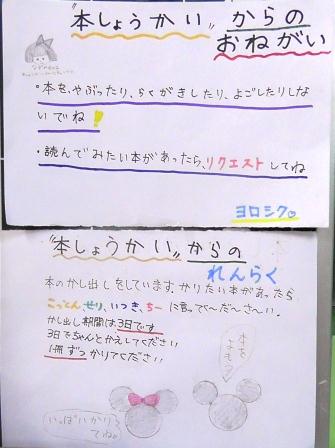 "本しょうかい"からの
おねがい
・本を、やぶったり、らくがきしたり、よごしたりしな
いでね!
・読んでみたい本があったら、リクエストしてね
ヨロシク
"本しょうかい"からの
れんらく
本のかし出しをしています。かりたい本があったら
こっとん、せり、いつき、ちーに言ってくーだーさーい。
かし出し期間は、3日です
3日でちゃんとかえしてください!
1冊ずつかりてください
本を
よもう?
いっぱいかり
てね。